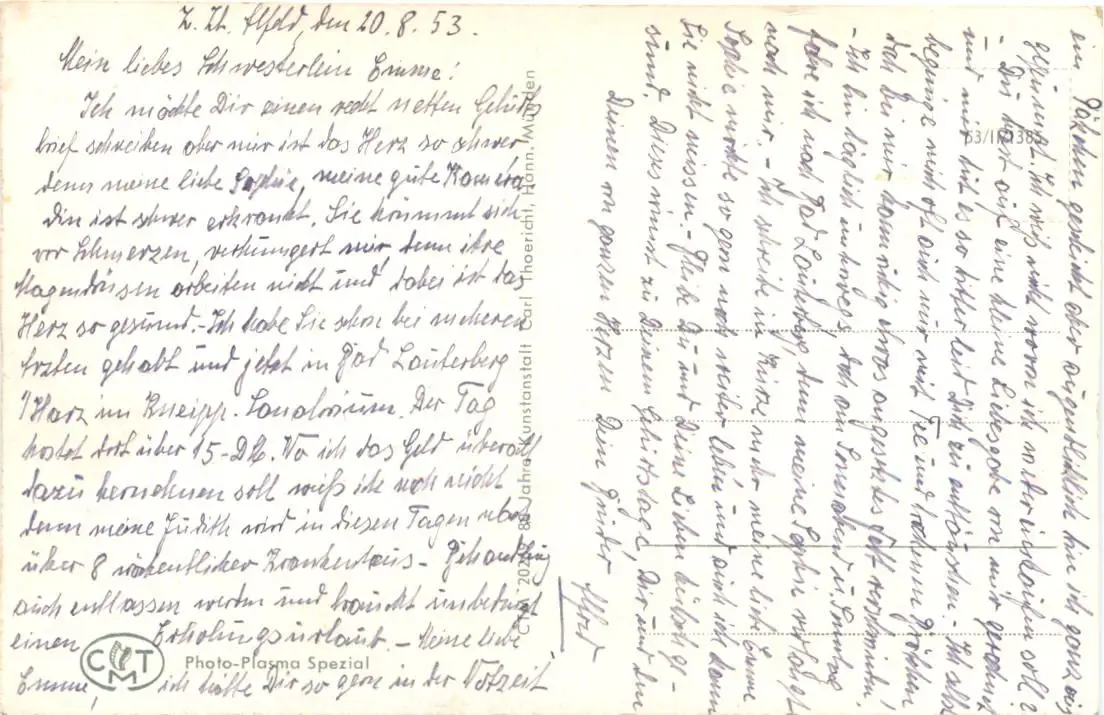 Z. Zt. Ilfeld, den 20.8.53.
Mein liebes Schwesterlein Emme!
Ich möchte Dir einen recht netten Geburts-
brief schreiben aber mir ist das Herz so schwer
denn meine liebe Sophie, meine gute Kamera-
din ist schwer erkrankt. Sie krümmt sich
vor Schmerzen, verhungert mir, denn ihre
Magendrüsen arbeiten nicht und dabei ist das
Herz so gesund. - Ich habe Sie schon bei mehreren
Ärzten gehabt und jetzt in Bad Lauterberg
/Harz im Kneipp-Sanatorium. Der Tag
kostet dort über 15 - DM. Wo ich das Geld überall
dazu hernehmen soll weiß ich noch nicht
denn meine Judith wird in diesen Tagen nach
über 8 wöchentlicher Krankenhaus-Behandlung
auch entlassen werden und braucht unbedingt
einen Erholungsurlaub. - Meine liebe
Emme, ich hätte Dir so gern in der Notzeit
ein Päckchen geschickt aber augenblicklich bin ich ganz aus-
gepumpt. Ich weis nicht wovon ich wieder einkaufen soll?
- Du hast auf eine kleine Liebesgabe von mir gerechnet
und mir tut es so bitter leid Dich zu enttäuschen. - Ich selbst
begnüge mich oft auch nur mit Tee und trockenem Brötchen
daß bei mir kein etwas angesetztes Fett verschwindet!
- Ich bin täglich unterwegs, doch am Sonnabend u. Sonntag
fahre ich nach Bad Lauterberg, denn meine Sophie verlangt
nach mir. - Ich schreibe in Kürze mehr meine liebe Emme
Sophie möchte so gern noch weiter leben und auch ich kann
Sie nicht missen. - Bleibe Du und Deine Lieben herzlich ge-
sund. Dies wünscht zu Deinem Geburtstage, Dir und den
Deinen von ganzem Herzen Dein Bruder
Alfred
53/II/1385
CTM 202 80 Jahre Kunstanstalt Carl Thoericht, Hann. Münden
CTM
Photo-Plasma Spezial